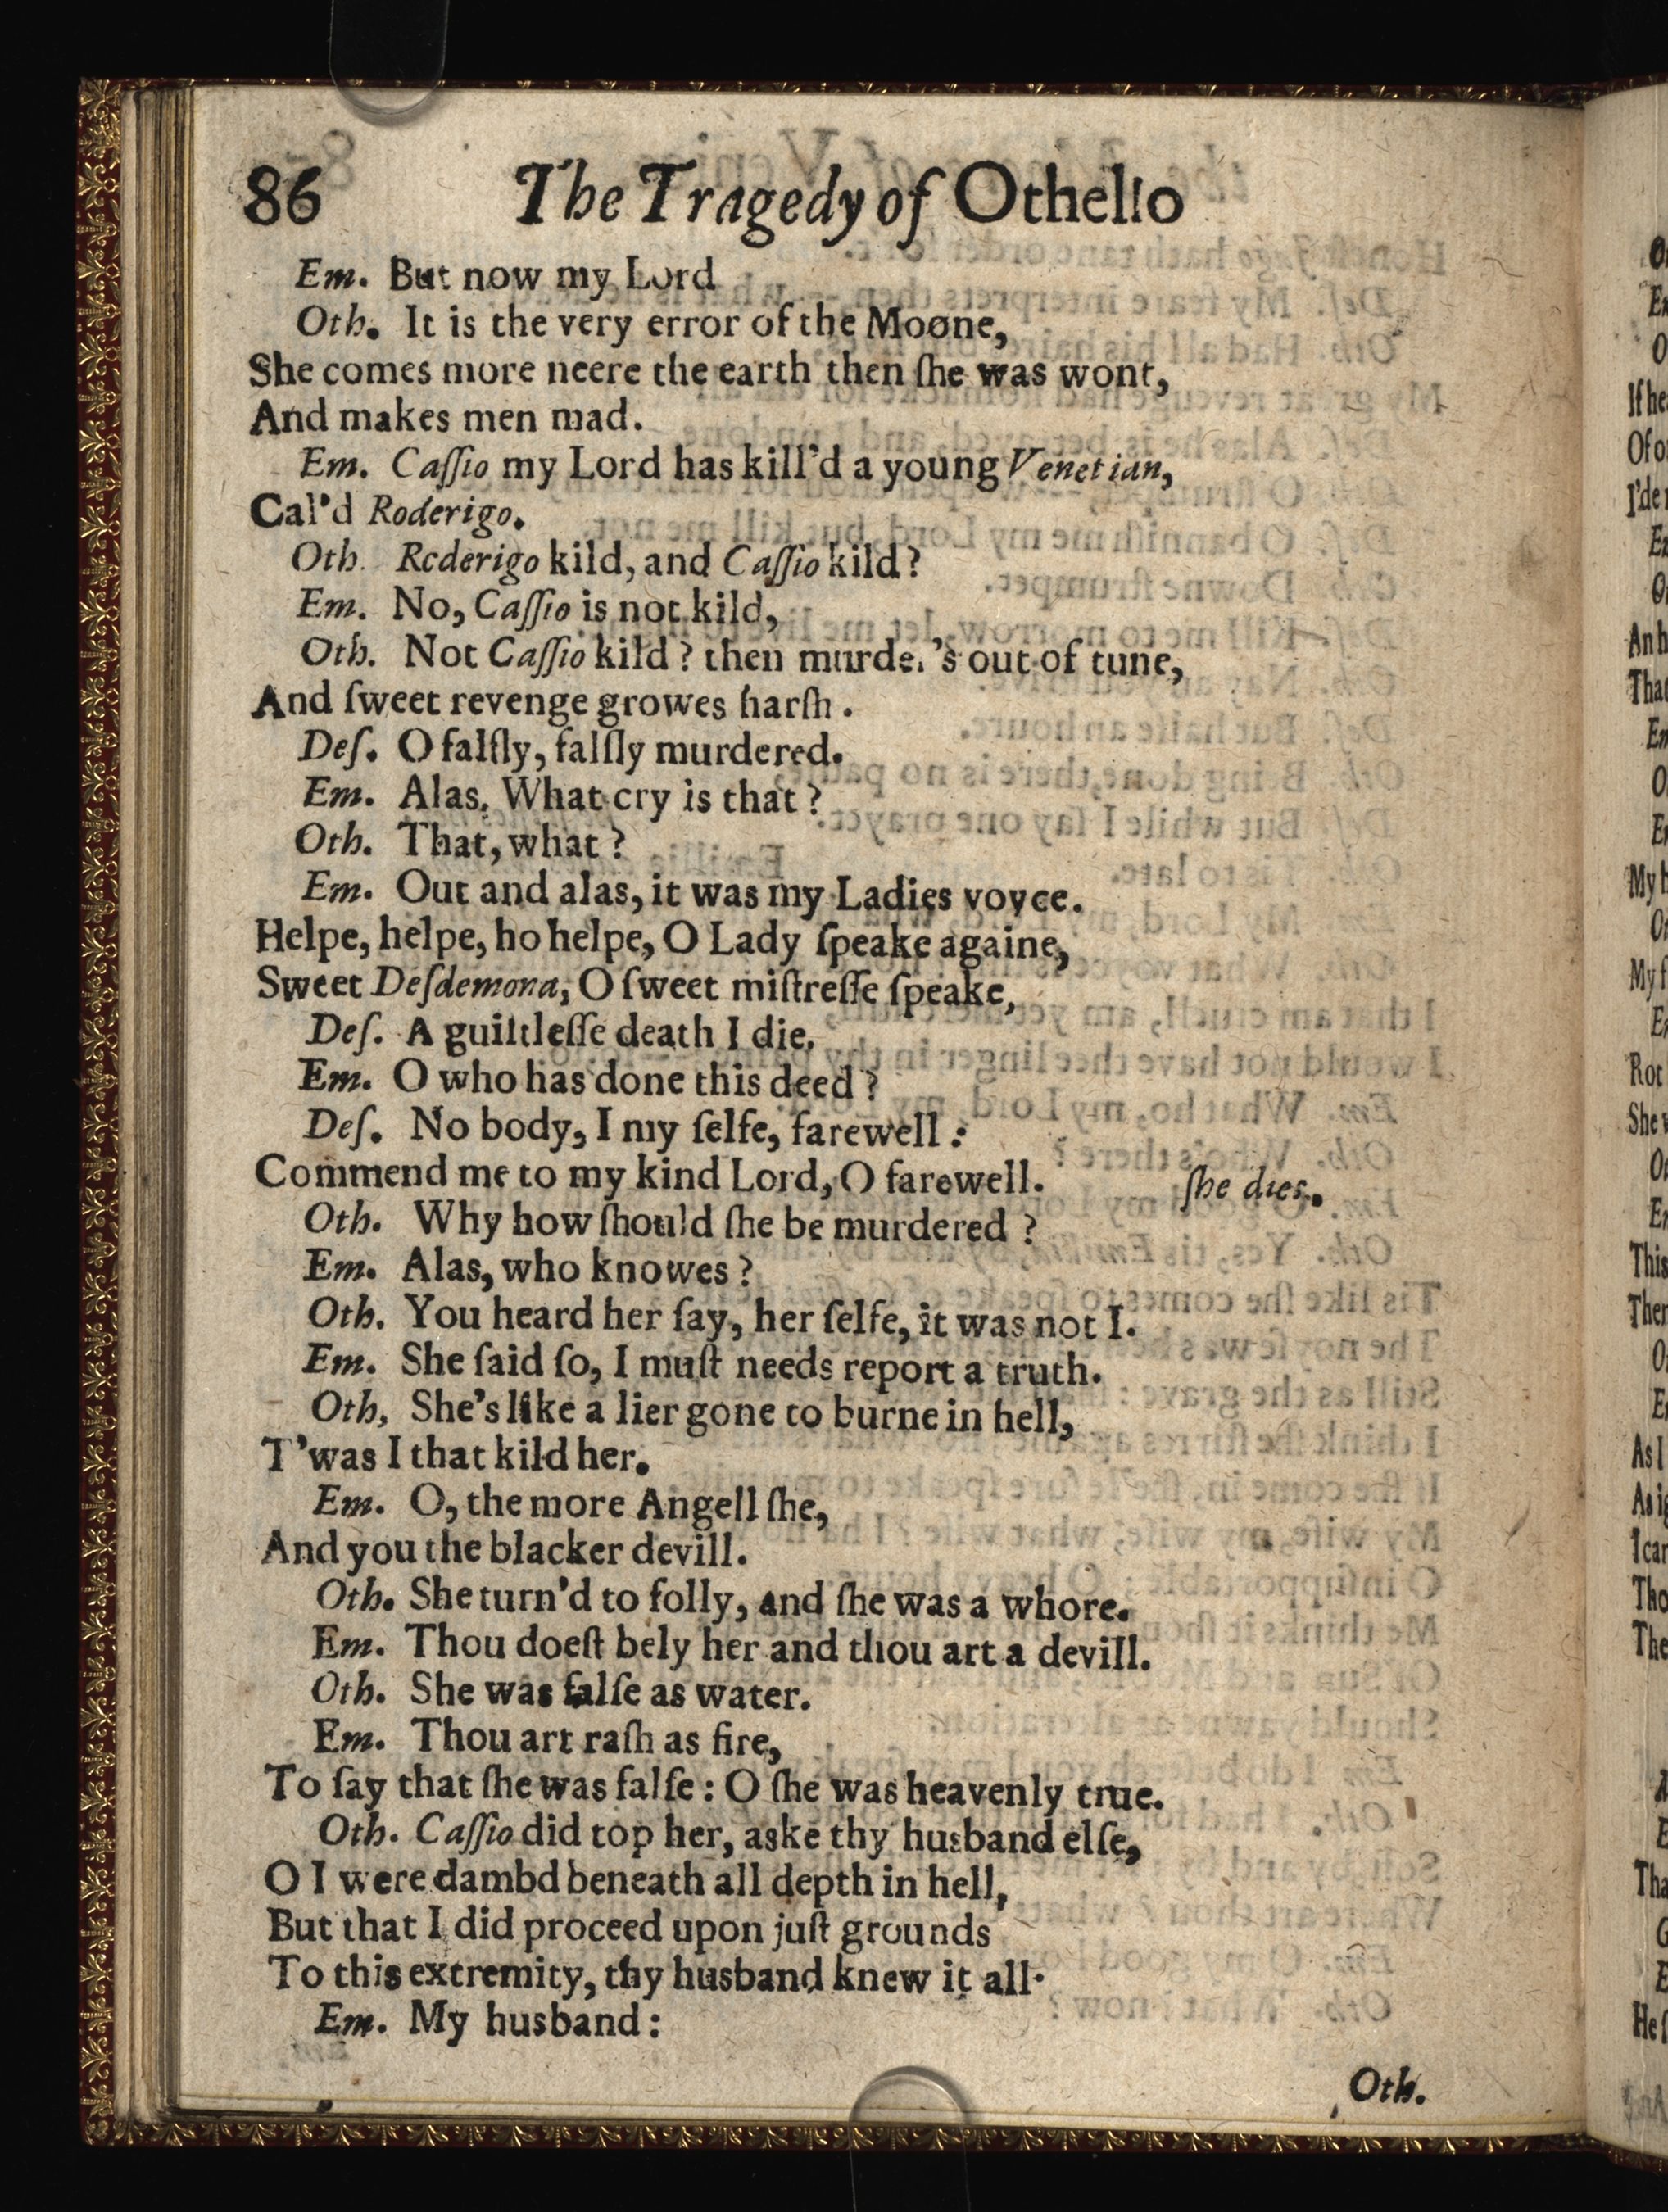 86 The Tragedy of Othello
Em. But now my Lord
Oth. It is the very error of the Moone,
She comes more neere the earth then ſhe was wont,
And makes men mad.
Em. Caſſio my Lord has kill'd a young Venetian,
Cal'd Roderigo.
Oth. Rcderigo kild, and Caſſio kild?
Em. No, Caſſio is not kild,
Oth. Not Caſſio kild? then murder's out of tune,
And ſweet revenge growes harſh.
Deſ. O falſly, falſly murdered.
Em. Alas. What cry is that?
Oth. That, what?
Em. Out and alas, it was my Ladies voyce.
Helpe, helpe, ho helpe, O Lady ſpeake againe,
Sweet Deſdemona, O ſweet miſtreſſe ſpeake,
Deſ. A guiltleſſe death I die.
Em. O who has done this deed?
Deſ. No body, I my ſelfe, farewell:
Commend me to my kind Lord, O farewell. ſhe dies.
Oth. Why how ſhould ſhe be murdered?
Em. Alas, who knowes?
Oth. You heard her ſay, her ſelfe, it was not I.
Em. She ſaid ſo, I muſt needs report a truth.
Oth, She's like a lier gone to burne in hell,
T'was I that kild her.
Em. O, the more Angell ſhe,
And you the blacker devill.
Oth. She turn'd to folly, and ſhe was a whore.
Em. Thou doeſt bely her and thou art a devill.
Oth. She was falſe as water.
Em. Thou art raſh as fire,
To ſay that ſhe was falſe: O ſhe was heavenly true.
Oth. Caſſio did top her, aske thy husband elſe,
O I were dambd beneath all depth in hell,
But that I did proceed upon juſt grounds
To this extremity, thy husband knew it all.
Em. My husband:
Oth.